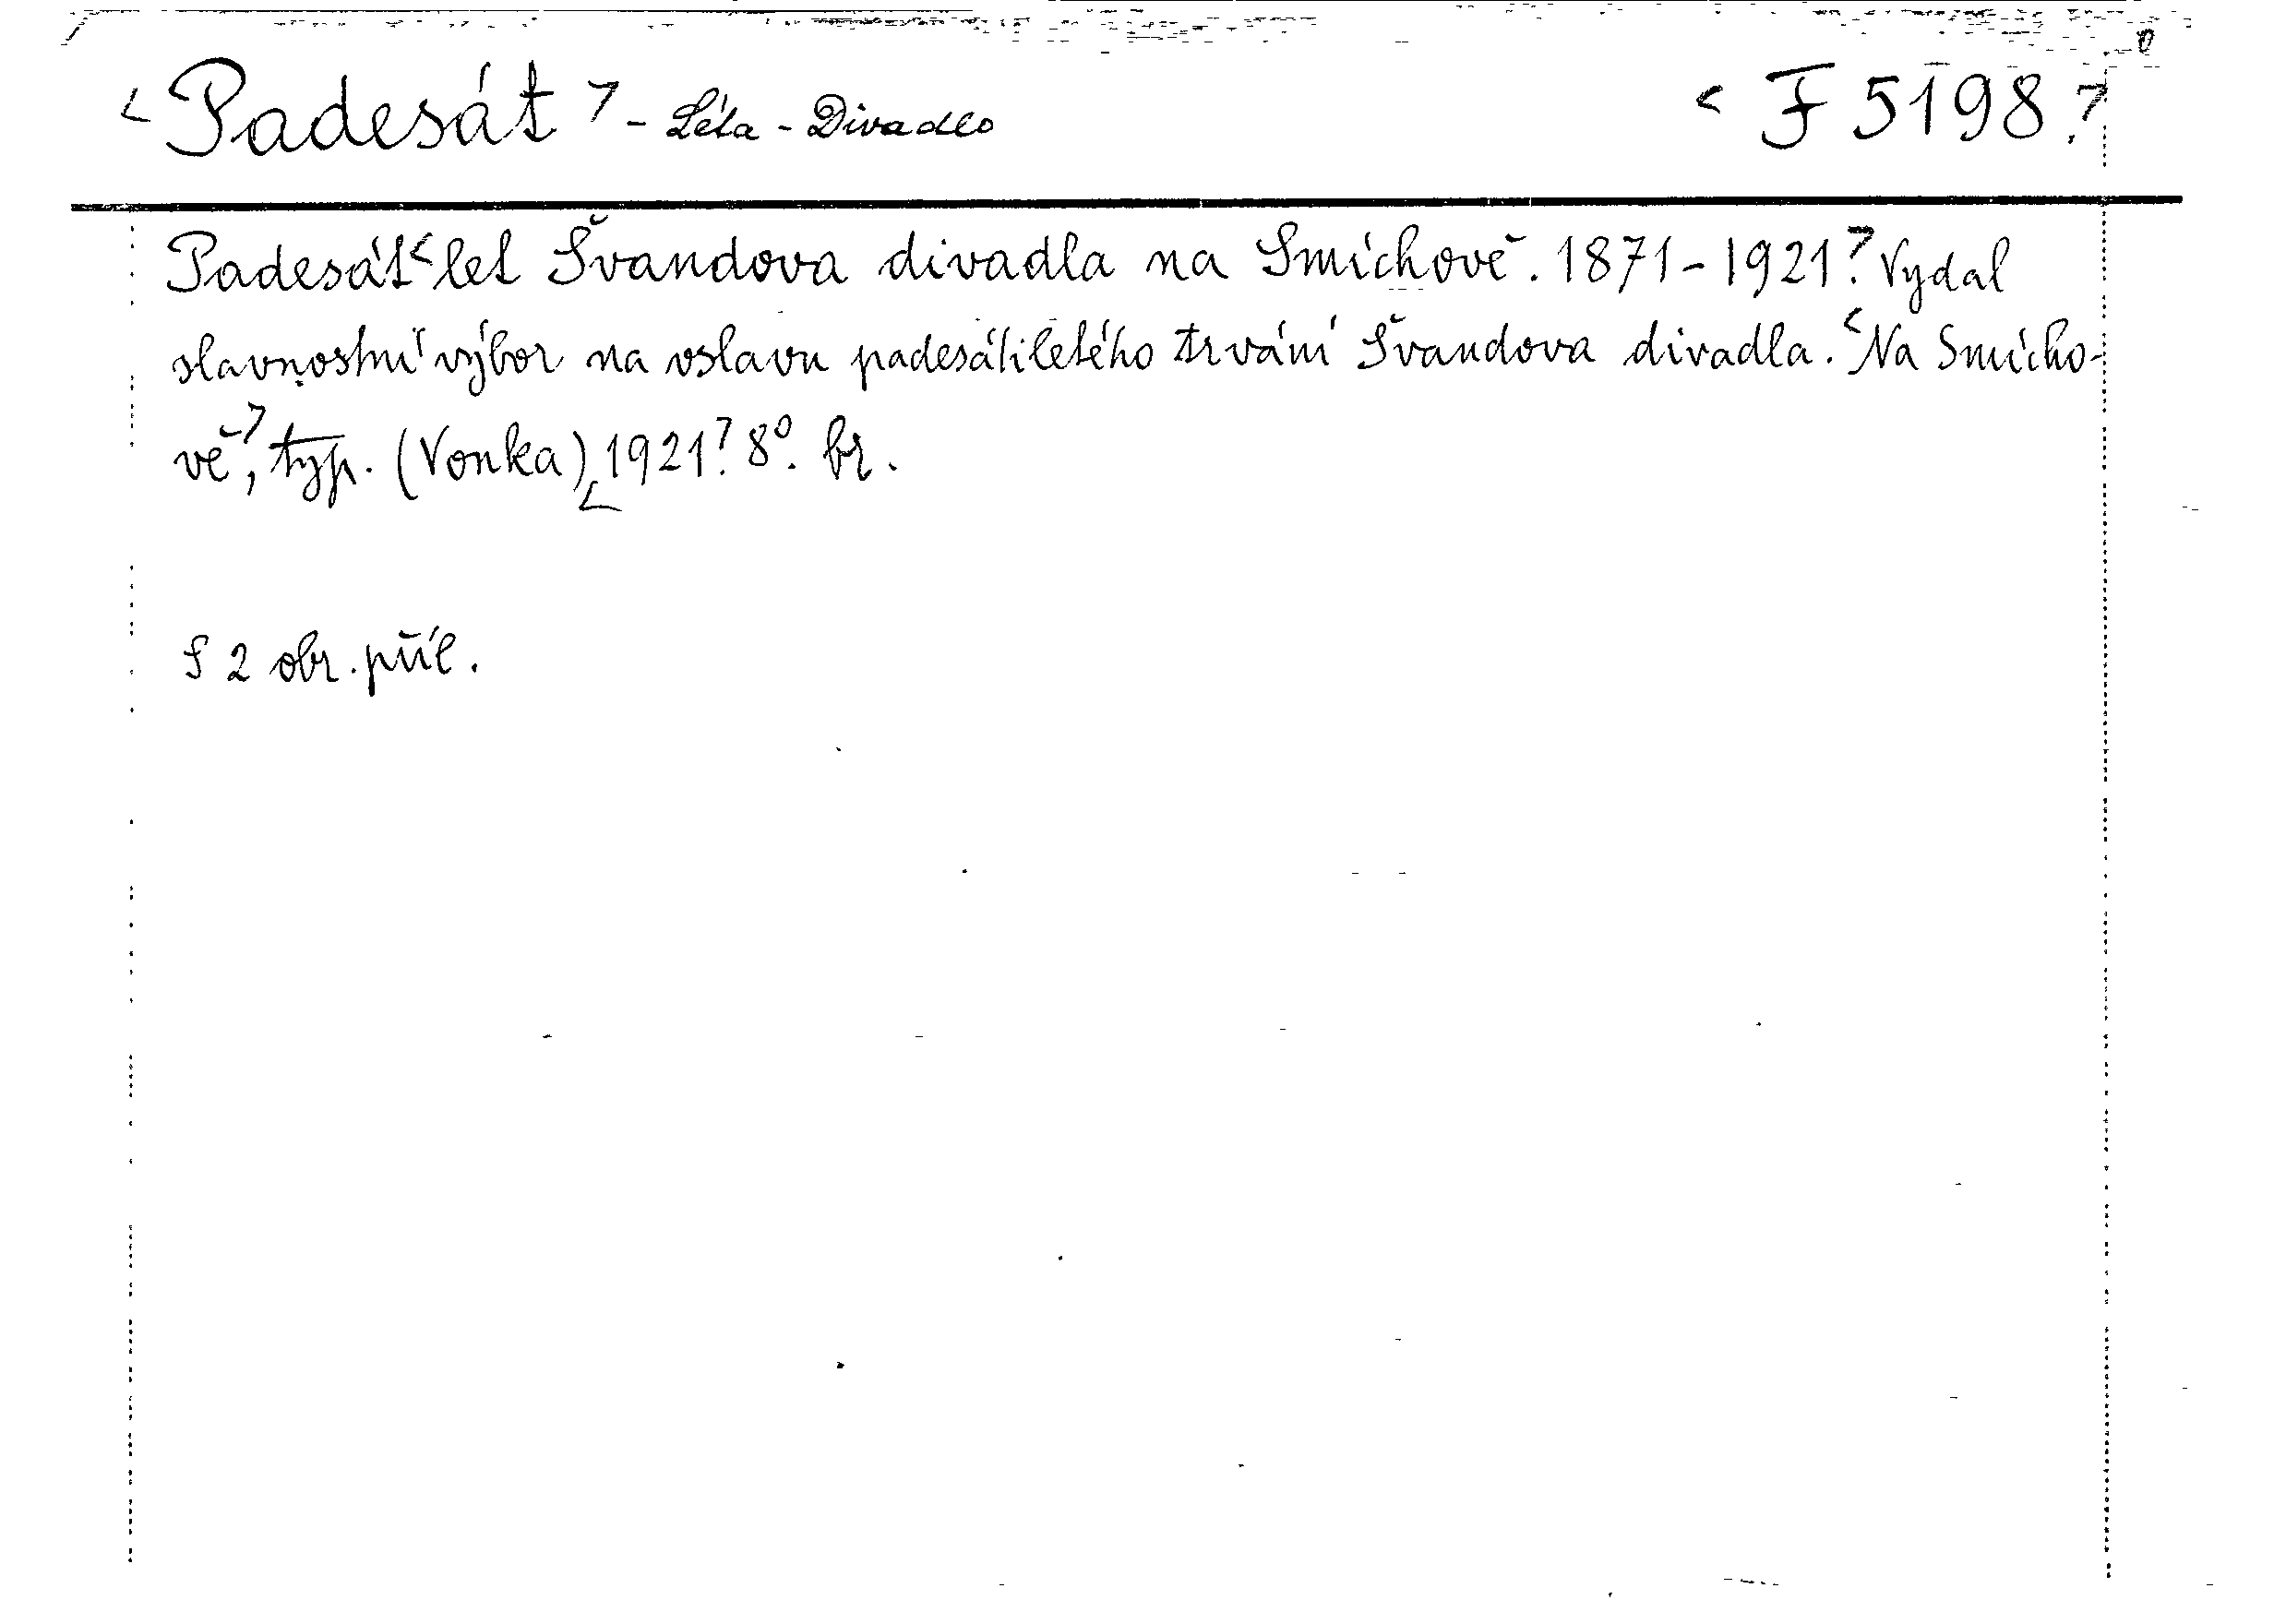 <Padesát> - Léta - Divadlo <F 5198.>
Padesát <let Švandova divadla na Smíchově. 1871-1921.> Vydal
slavnostní výbor na oslavu padesátiletého trvání Švandova divadla. <Na Smícho-
vě>, typ. (Vonka) <1921.> 8°. br.
S 2 obr. příl.